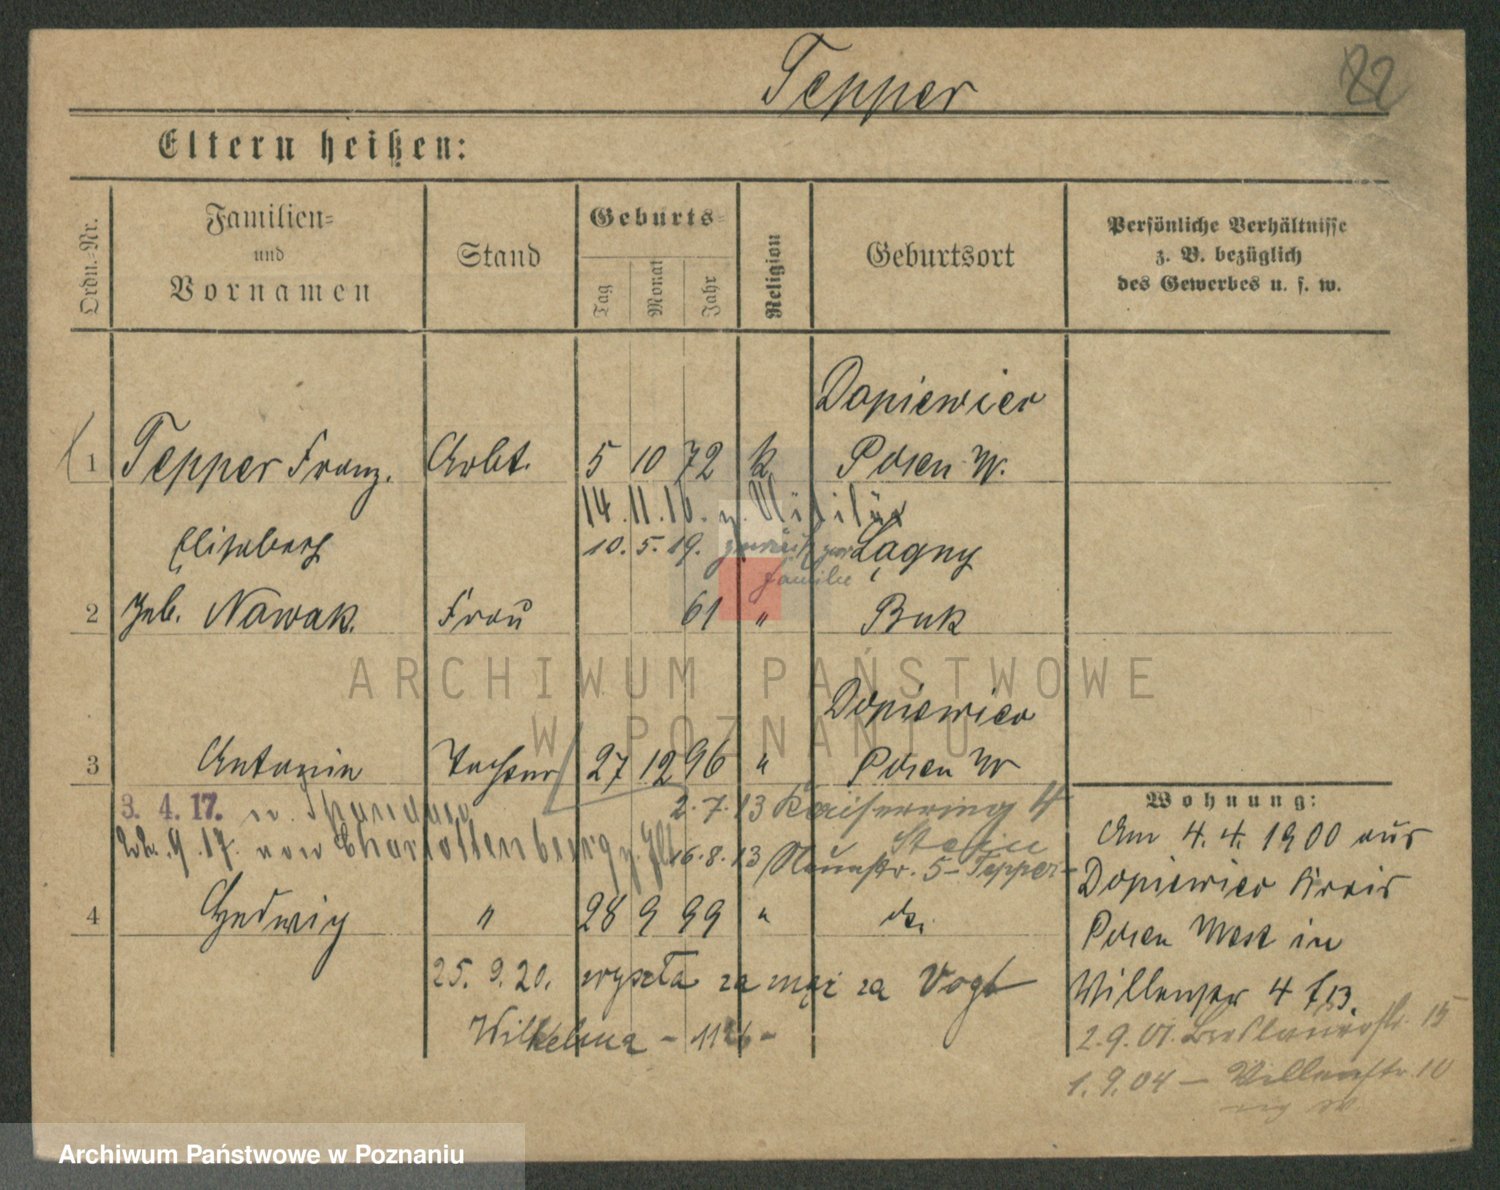 Tepper
22
Eltern heißen:
Ordn.-Nr.
Familien- und Vornamen
Stand
Geburts-
Tag
Monat
Jahr
Religion
Geburtsort
Persönliche Verhältnisse
z. B. bezüglich
des Gewerbes u. s. w.
Dopiewiec
1 Tepper Franz. Arbt. 5 10 72 k Posen W.
14.11.16. z. Militär
Elisabeth 10.5.19. zurück zur Łagny
Familie
2 geb. Nawak. Frau 61 " Buk
Dopiewiec
3 Antonie Tochter 27 12 96 " Posen W
3. 4. 17. n. Spandau 2.7.13 Kaiserring 4
Stein
22.9.17. von Charlottenburg 16.8.13 5 - Tepper -
4 Hedwig " 28 9 99 " do.
25.9.20. wyszła za mąż za Vogt
Wilhelma - 1126 -
Wohnung:
Am 4.4.1900 aus
Dopiewiec Kreis
Posen West in
4
2.9.01. Breslauerstr. 15
1.9.04 - 10
ARCHIWUM PAŃSTWOWE
W POZNANIU
Archiwum Państwowe w Poznaniu